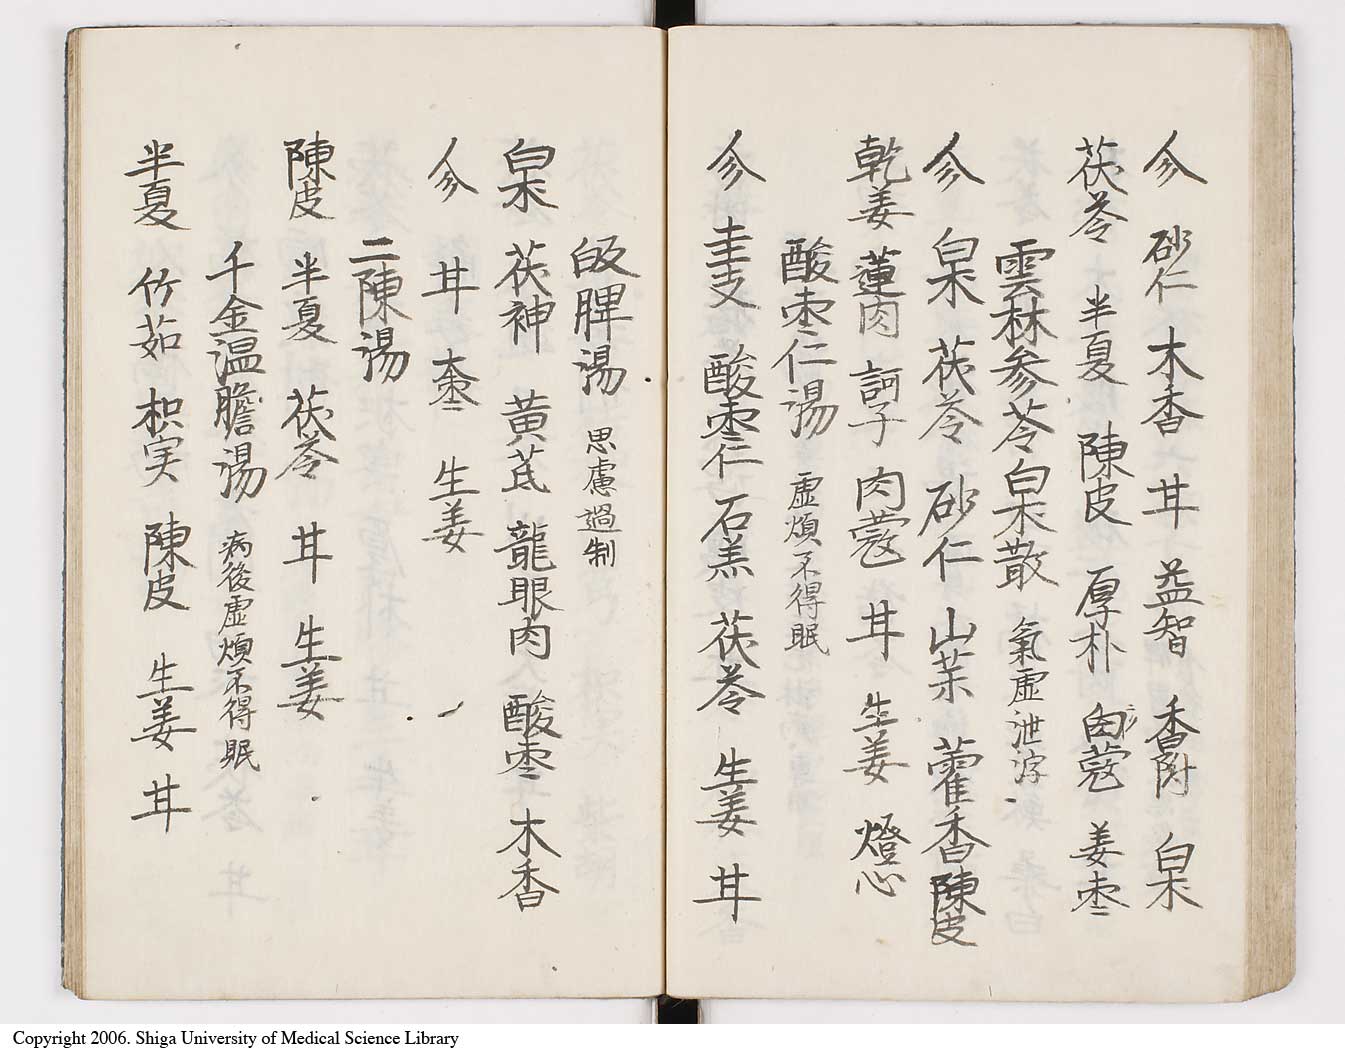 参 砂仁 木香 甘 益智 香附 白朮
茯苓 半夏 陳皮 厚朴 白蔲 姜棗
雲林参苓白朮散 氣虚泄瀉
参 白朮 茯苓 砂仁 山茱 藿香 陳皮
乾姜 蓮肉 訶子 肉蔲 甘 生姜 燈心
酸棗仁湯 虚煩不得眠
参 圭支 酸棗仁 石羔 茯苓 生姜 甘
皈脾湯 思慮過制
白朮 茯神 黄芪 龍眼肉 酸棗 木香
参 甘 棗 生姜
二陳湯
陳皮 半夏 茯苓 甘 生姜
千金温膽湯 病後虚煩不得眠
半夏 竹茹 枳実 陳皮 生姜 甘
Copyright 2006. Shiga University of Medical Science Library